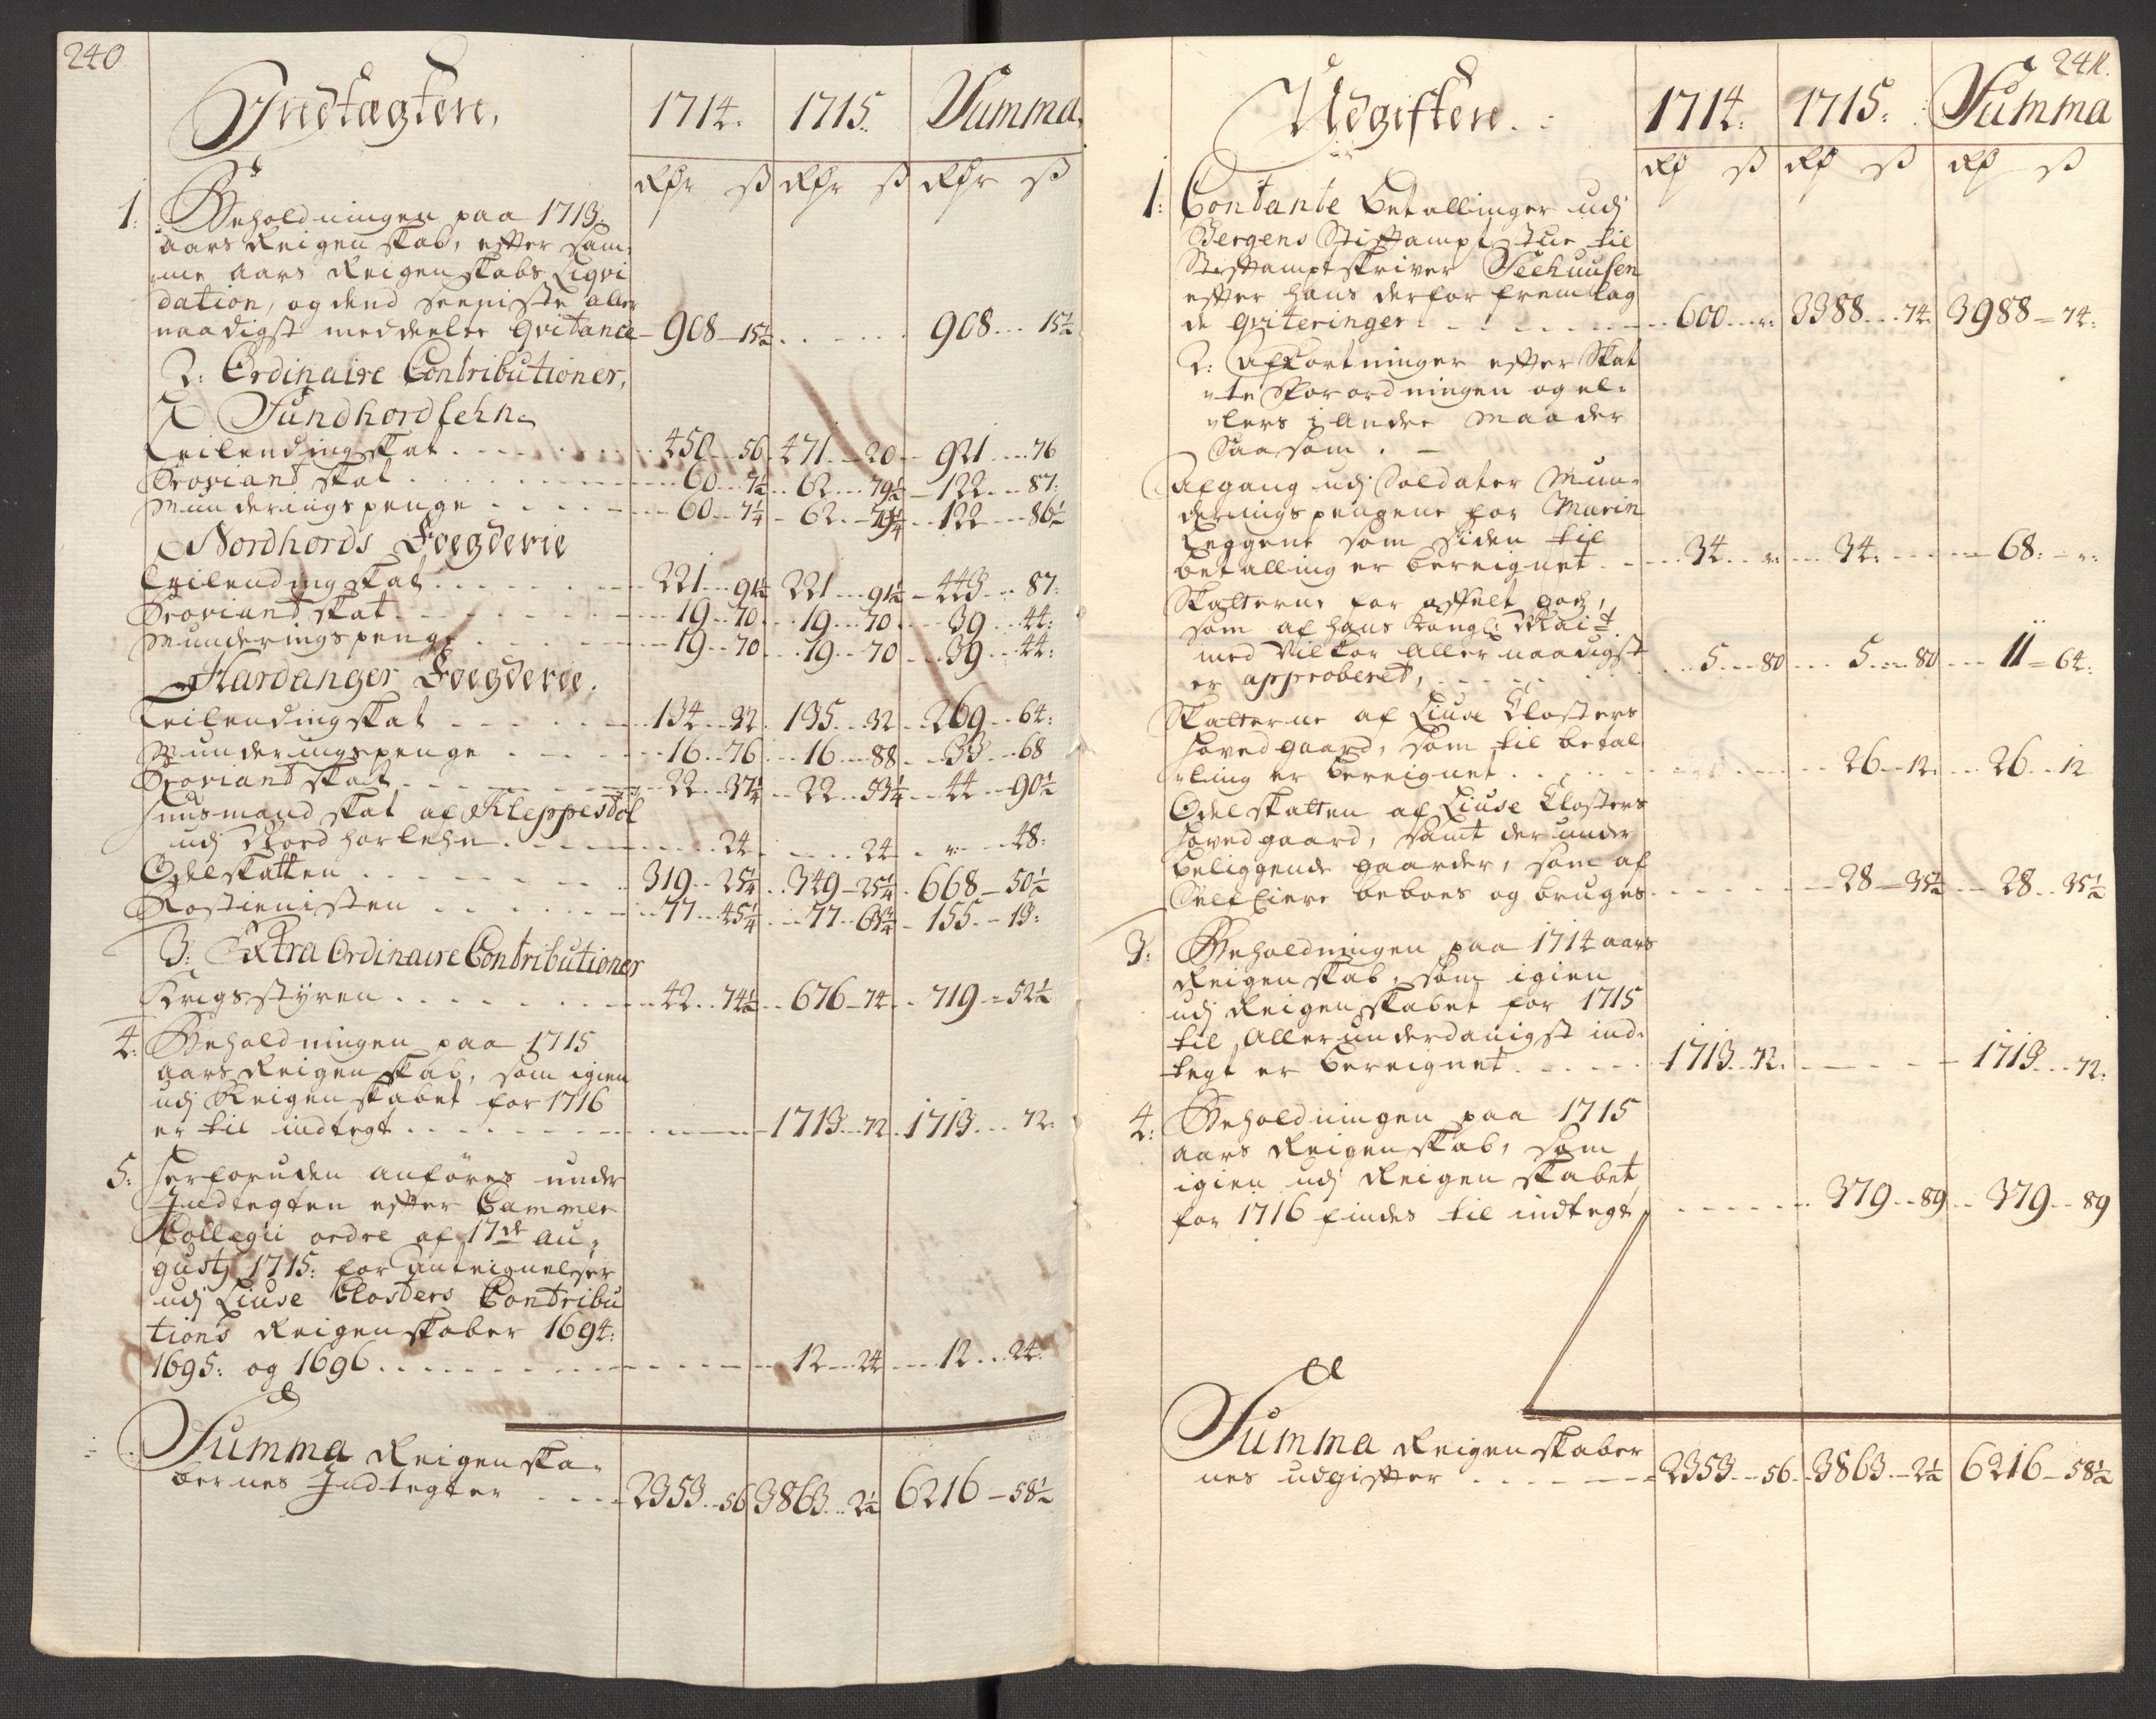 240
Indtægten, 1714. 1715. Summa,
Rdr ß Rdr ß Rdr ß
1: Beholdningen paa 1713:
aars Reigenskab, efter sam-
me aars Reigenskabs Liqvi
dation, og dend seeniste aller
naadigst meddeelte Qvitance 908 15½ 908 15½
2: Ordinaire Contributioner,
Sundhordlehn
Leilendingskat 450 56 471 20 921 76
Proviant skat 60 7½ 62 79½ 122 87:
Munderings penge 60 7¼ 62 79¼ 122 86½
Nordhords Foegderie
Leilendingskat 221 91½ 221 91½ 443 87:
Proviant skat 19 70 19 70 39 44:
Munderings penge 19 70 19 70 39 44:
Hardanger Foegderie.
Leilendingskat 134 32 135 32 269 64:
Munderingspenge 16 76 16 88 33 68
Proviant skat 22 37¼ 22 53¼ 44 90½
Huusmand skat af Kleppesdol
udj Nord horlehn 24 24 48:
Odelskatten 319 25¼ 349 25¼ 668 50½
Rostienisten 77 45¼ 77 63¾ 155 13:
3: Extra Ordinaire Contributioner
Krigsstyren 42 74½ 676 74 719 52½
4: Beholdningen paa 1715
aars Reigenskab, som igien
udj Reigenskabet for 1716
er til indtegt 1713 72 1713 72:
5: Herforuden anföres under
Indtegten efter Cammer
Collegii ordre af 17de au-
gustj 1715: for Anteignelser
udj Liuse Closters Contribu
tions Reigenskaber 1694:
1695: og 1696 12 24 12 24:
Summa Reigenska-
bernes Indtegter 2353 56 3863 2½ 6216 58½
241.
Udgiften. 1714: 1715: Summa
Rd ß Rd ß Rd ß
1: Contante betallinger udj
Bergens Stiftampt stue til
Stiftamptskriver Seehuusen
efter hans derfor fremlag
de qviteringer 600 3388 74 3988 74:
2: Afkortninger efter Skat
te Forordningen og el-
lers i andre maader
Saasom.
Afgang udj Soldater Mun-
derings pengene for Marin
Leggene som siden til
betalling er bereignet 34 34: 68:
Skatterne for
som af hans Kongl: Mait
med vilkor allernaadigst
er approberet, 5 80 5 80 11 64:
Skatterne af Liuse Closters
hovedgaard, som til betal
ling er bereignet 26 12: 26 12
Odelskatten af Liuse Closters
hovedgaard, samt der under
beliggende gaarder, som af
Self Eiere beboes og bruges 28 35½ 28 35½
3: Beholdningen paa 1714 aars
Reigenskab, som igien
udj Reigenskabet for 1715
til Allerunderdanigst ind-
tegt er bereignet 1713 72. 1713 72.
4: Beholdningen paa 1715
aars Reigenskab, som
igien udj Reigenskabet
for 1716 findes til indtegt 379 89 379 89
Summa Reigenskaber
nes udgifter 2353 56 3863 2½ 6216 58½